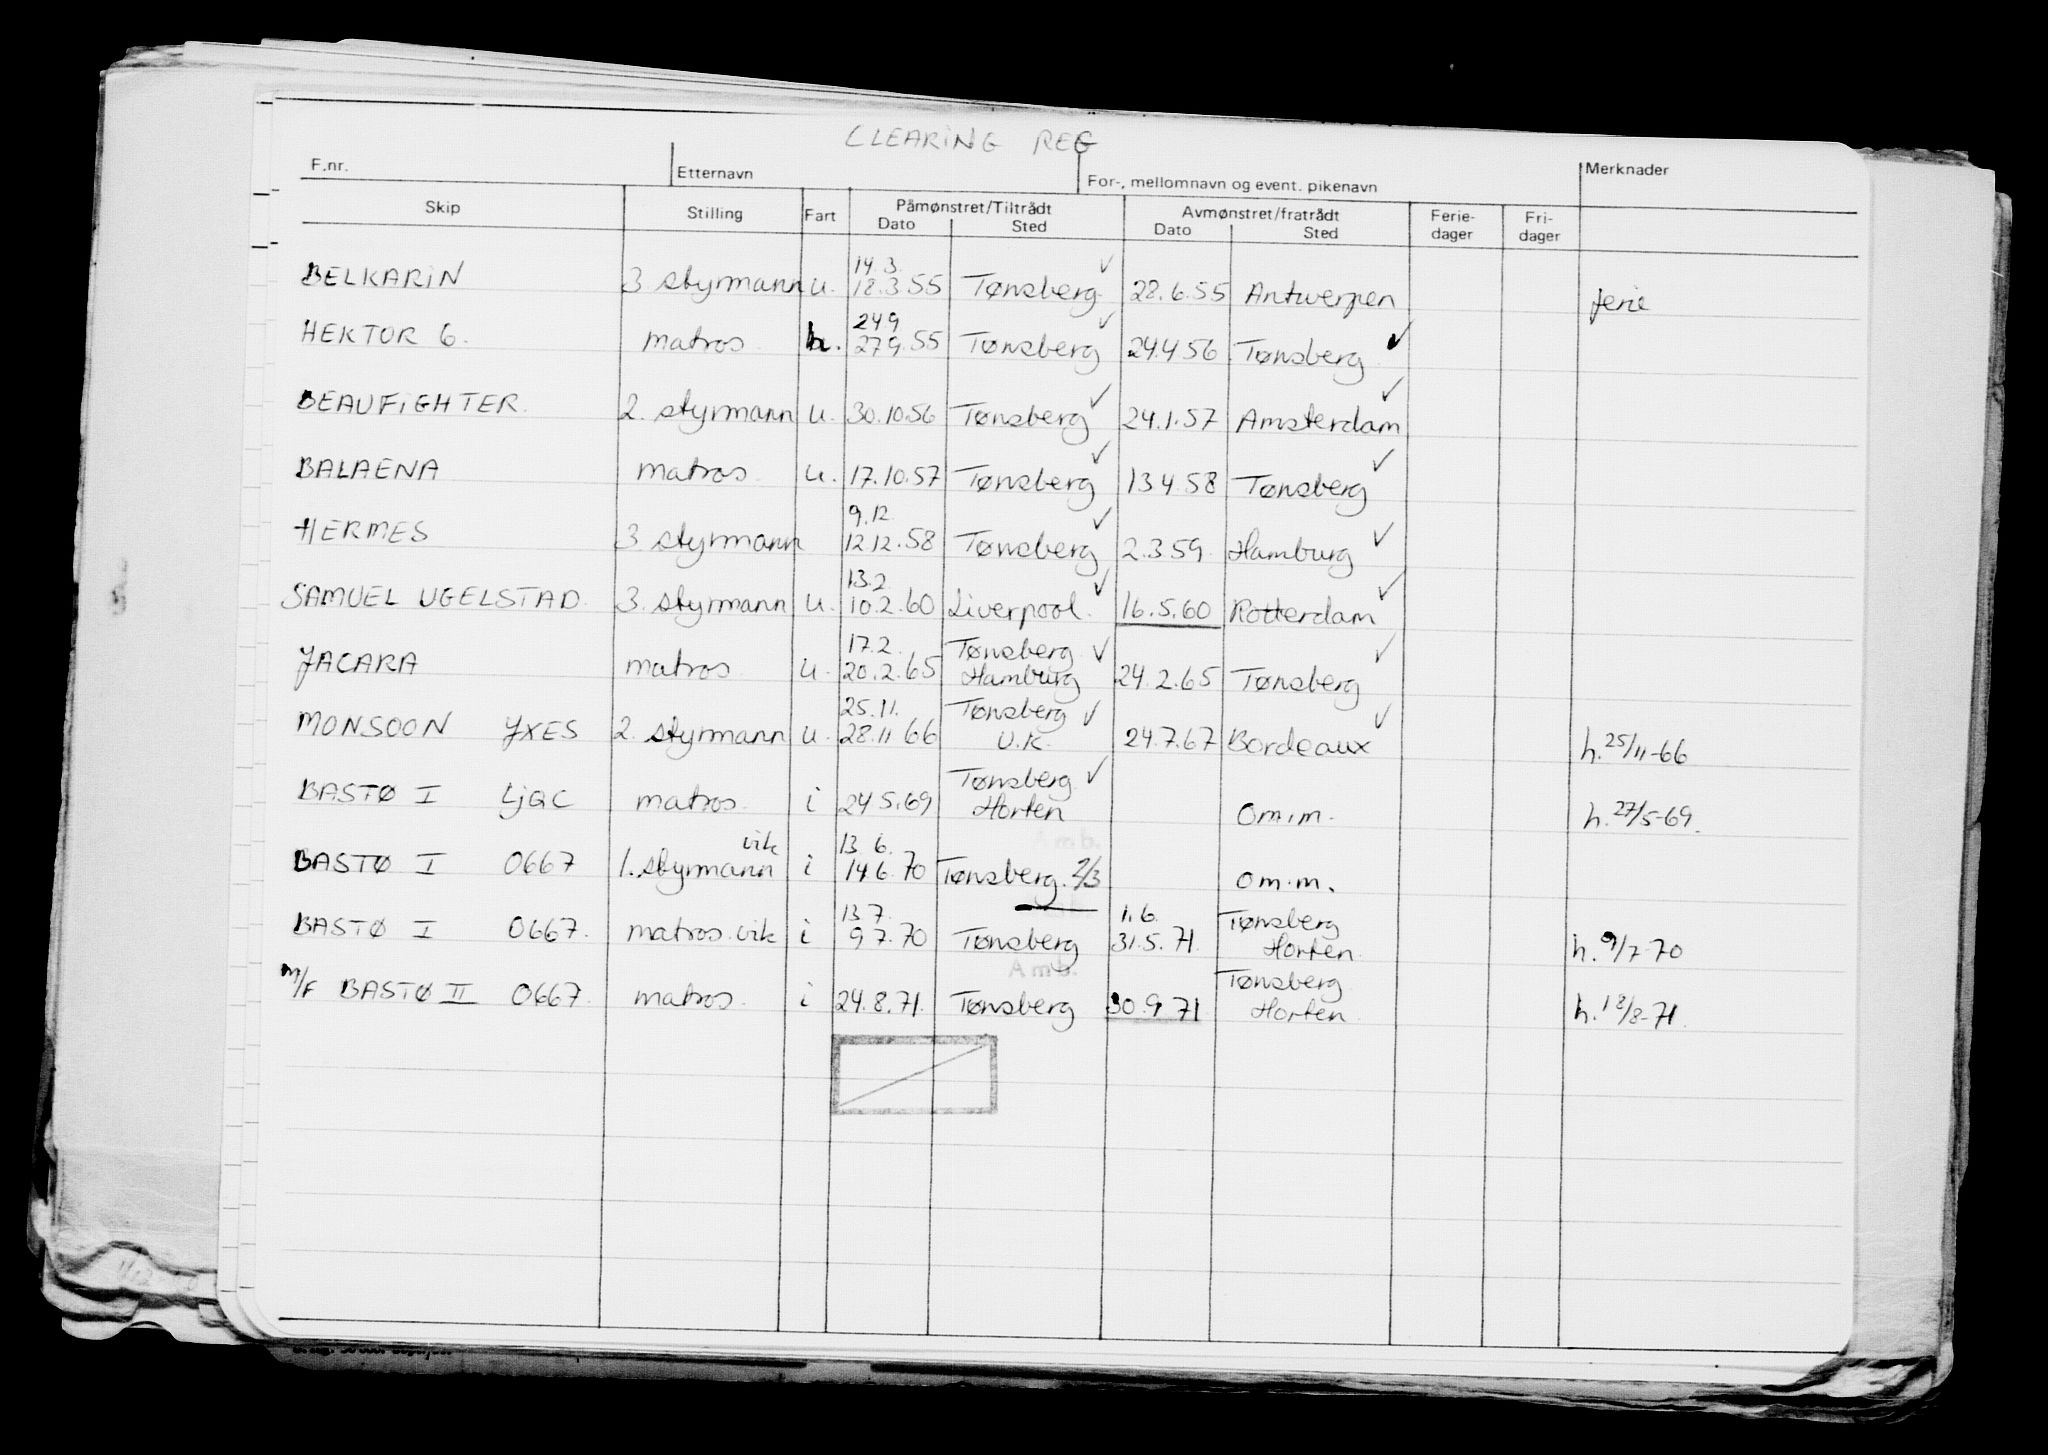 CLEARING REG
F.nr. Etternavn For-, mellomnavn og event. pikenavn Merknader
Skip Stilling Fart Påmønstret/Tiltrådt Avmønstret/fratrådt Ferie- Fri-
Dato Sted Dato Sted dager dager
14.3. ✓
BELKARIN 3 styrmann u. 18.3.55 Tønsberg 28.6.55 Antwerpen ferie
24 9 ✓
HEKTOR 6. matros h. 27 9.55 Tønsberg 24.4 56 Tønsberg ✓
BEAUFIGHTER. 2. styrmann u. 30.10.56 Tønsberg ✓ 24.1.57 Amsterdam ✓
BALAENA matros u. 17.10.57 Tønsberg ✓ 13 4.58 Tønsberg ✓
9.12
HERMES 3 styrmann 12 12.58 Tønsberg ✓ 2.3 59. Hamburg ✓
13.2
SAMUEL UGELSTAD. 3. styrmann u. 10.2.60 Liverpool. ✓ 16.5.60 Rotterdam ✓
17.2. Tønsberg ✓
JACARA matros u. 20.2.65 Hamburg 24.2.65 Tønsberg ✓
25.11. Tønsberg ✓
MONSOON JXES 2. styrmann u. 28.11 66 U.K. 24.7.67 Bordeaux ✓ h. 25/11-66
Tønsberg ✓
BASTØ I LJQC matros i 24 5.69 Horten om.m. h. 27/5-69.
vik 13 6. Amb.
BASTØ I 0667 1. styrmann i 14 6.70 Tønsberg. 2/3 om.m.
13 7. 1.6. Tønsberg
BASTØ I 0667. matros. vik i 9 7.70 Tønsberg 31.5.71. Horten h. 9/7-70
Amb. Tønsberg
m/f BASTØ II 0667. matros. i 24.8.71. Tønsberg 30.9 71 Horten h. 18/8-71.